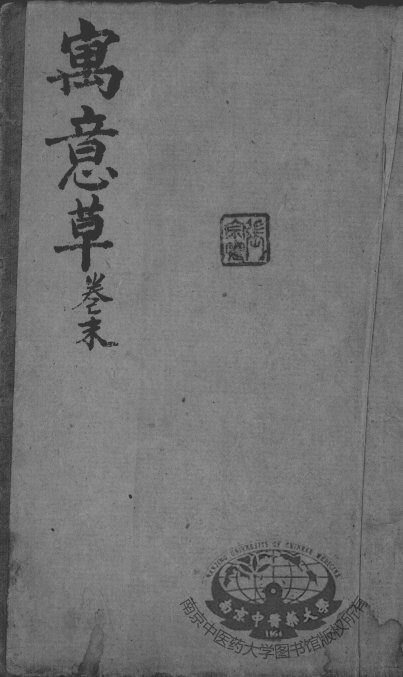 寓意草
卷末
NANJING UNIVERSITY OF CHINESE MEDICINE
南京中醫藥大學
1954
南京中医药大学图书馆版权所有